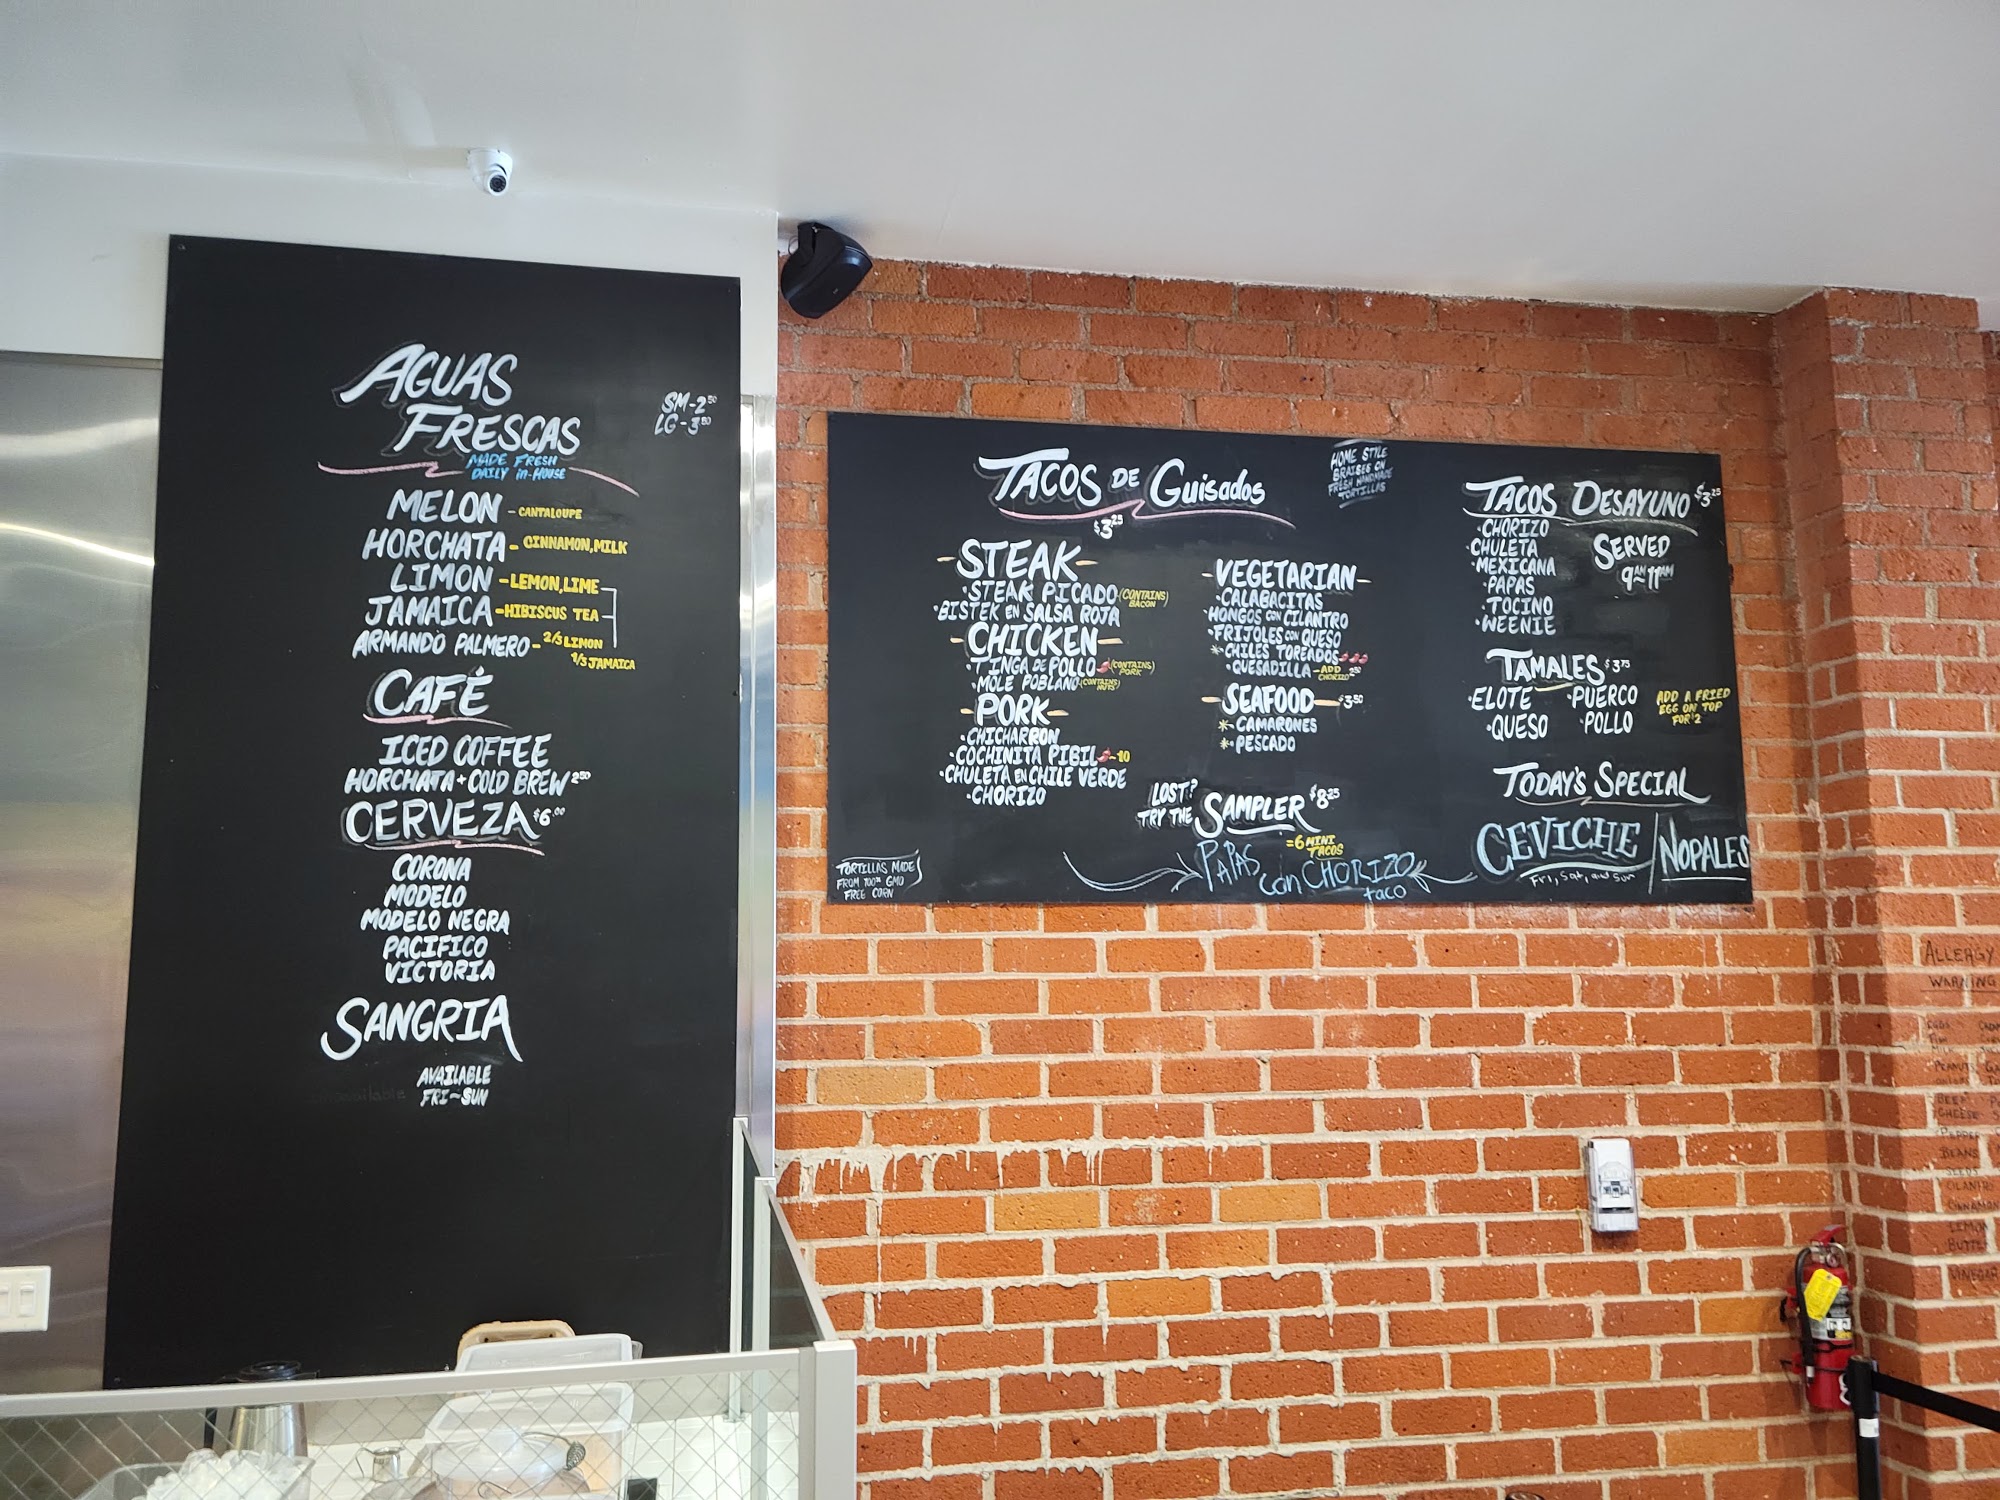 AGUAS
FRESCAS
MADE FRESH
DAILY in-HOUSE
SM-2⁵⁰
LG-3⁵⁰
MELON - CANTALOUPE
HORCHATA - CINNAMON, MILK
LIMON - LEMON, LIME
JAMAICA - HIBISCUS TEA
ARMANDO PALMERO - 2/3 LIMON
1/3 JAMAICA
CAFÉ
ICED COFFEE
HORCHATA + COLD BREW 2⁵⁰
CERVEZA $6.⁰⁰
CORONA
MODELO
MODELO NEGRA
PACIFICO
VICTORIA
SANGRIA
AVAILABLE
FRI~SUN
TACOS DE GUISADOS
$3²⁵
HOME STYLE
BRAISES ON
FRESH HANDMADE
TORTILLAS
-STEAK-
·STEAK PICADO (CONTAINS
BACON)
·BISTEK EN SALSA ROJA
CHICKEN-
·TINGA DE POLLO (CONTAINS
PORK)
·MOLE POBLANO (CONTAINS
NUTS)
-PORK-
·CHICHARRON
·COCHINITA PIBIL ~10
·CHULETA EN CHILE VERDE
·CHORIZO
-VEGETARIAN-
·CALABACITAS
·HONGOS CON CILANTRO
·FRIJOLES CON QUESO
*·CHILES TOREADOS
·QUESADILLA - ADD
CHORIZO 2⁵⁰
-SEAFOOD- $3·⁵⁰
*·CAMARONES
*·PESCADO
LOST?
TRY THE SAMPLER $8²⁵
=6 MINI
TACOS
PAPAS con CHORIZO
taco
TORTILLAS MADE
FROM 100% GMO
FREE CORN
TACOS DESAYUNO $3²⁵
·CHORIZO
·CHULETA
·MEXICANA
·PAPAS
·TOCINO
·WEENIE
SERVED
9AM~11AM
TAMALES $3⁷⁵
·ELOTE ·PUERCO
·QUESO ·POLLO
ADD A FRIED
EGG ON TOP
FOR $2
TODAY'S SPECIAL
CEVICHE
Fri, Sat, and Sun
NOPALES
ALLERGY
WARNING
EGGS
MILK
PEANUTS
BEEF
CHEESE
PEPPER
BEANS
SEEDS
CILANTRO
CINNAMON
LEMON
BUTTER
VINEGAR